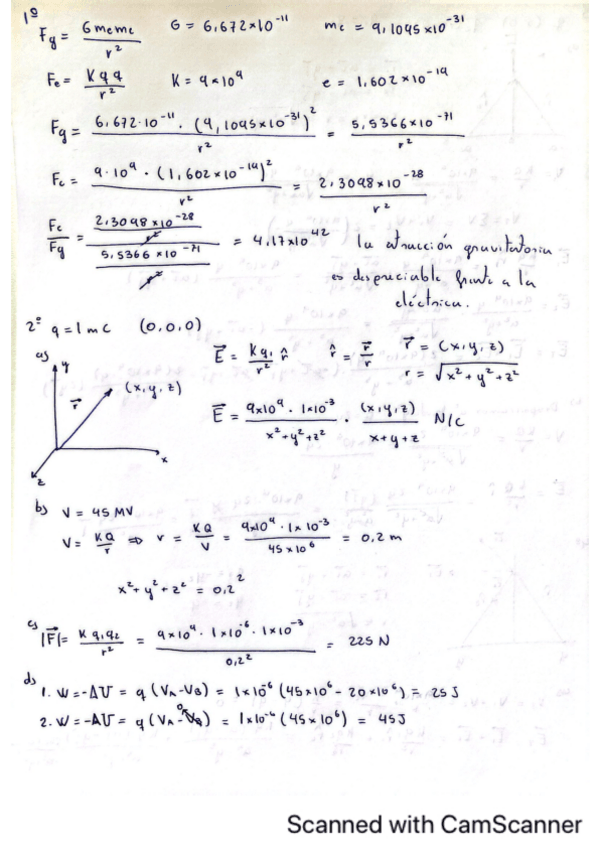 1º
Fg = G me me / r² G = 6,672×10⁻¹¹ me = 9,1095×10⁻³¹
Fe = K q q / r² K = 9×10⁹ e = 1,602×10⁻¹⁹
Fg = 6,672·10⁻¹¹ · (9,1095×10⁻³¹)² / r² = 5,5366×10⁻⁷¹ / r²
Fe = 9·10⁹ · (1,602×10⁻¹⁹)² / r² = 2,3098×10⁻²⁸ / r²
Fe / Fg = (2,3098×10⁻²⁸ / r²) / (5,5366×10⁻⁷¹ / r²) = 4,17×10⁴² la atracción gravitatoria
es despreciable frente a la
eléctrica.
2º q = 1 mC (0,0,0)
a) y (x,y,z) r⃗ x z
E⃗ = K q₁ / r² r̂ r̂ = r⃗ / r r⃗ = (x,y,z)
r = √x²+y²+z²
E⃗ = 9×10⁹ · 1×10⁻³ / x²+y²+z² · (x,y,z) / x+y+z N/C
b) V = 45 MV
V = KQ / r ⇒ r = KQ / V = 9×10⁹ · 1×10⁻³ / 45×10⁶ = 0,2 m
x²+y²+z² = 0,2²
c) |F⃗| = K q₁q₂ / r² = 9×10⁹ · 1×10⁻⁶ · 1×10⁻³ / 0,2² = 225 N
d)
1. W = -ΔU = q (VA - VB) = 1×10⁻⁶ (45×10⁶ - 20×10⁶) = 25 J
2. W = -ΔU = q (VA - VB) = 1×10⁻⁶ (45×10⁶) = 45 J
Scanned with CamScanner